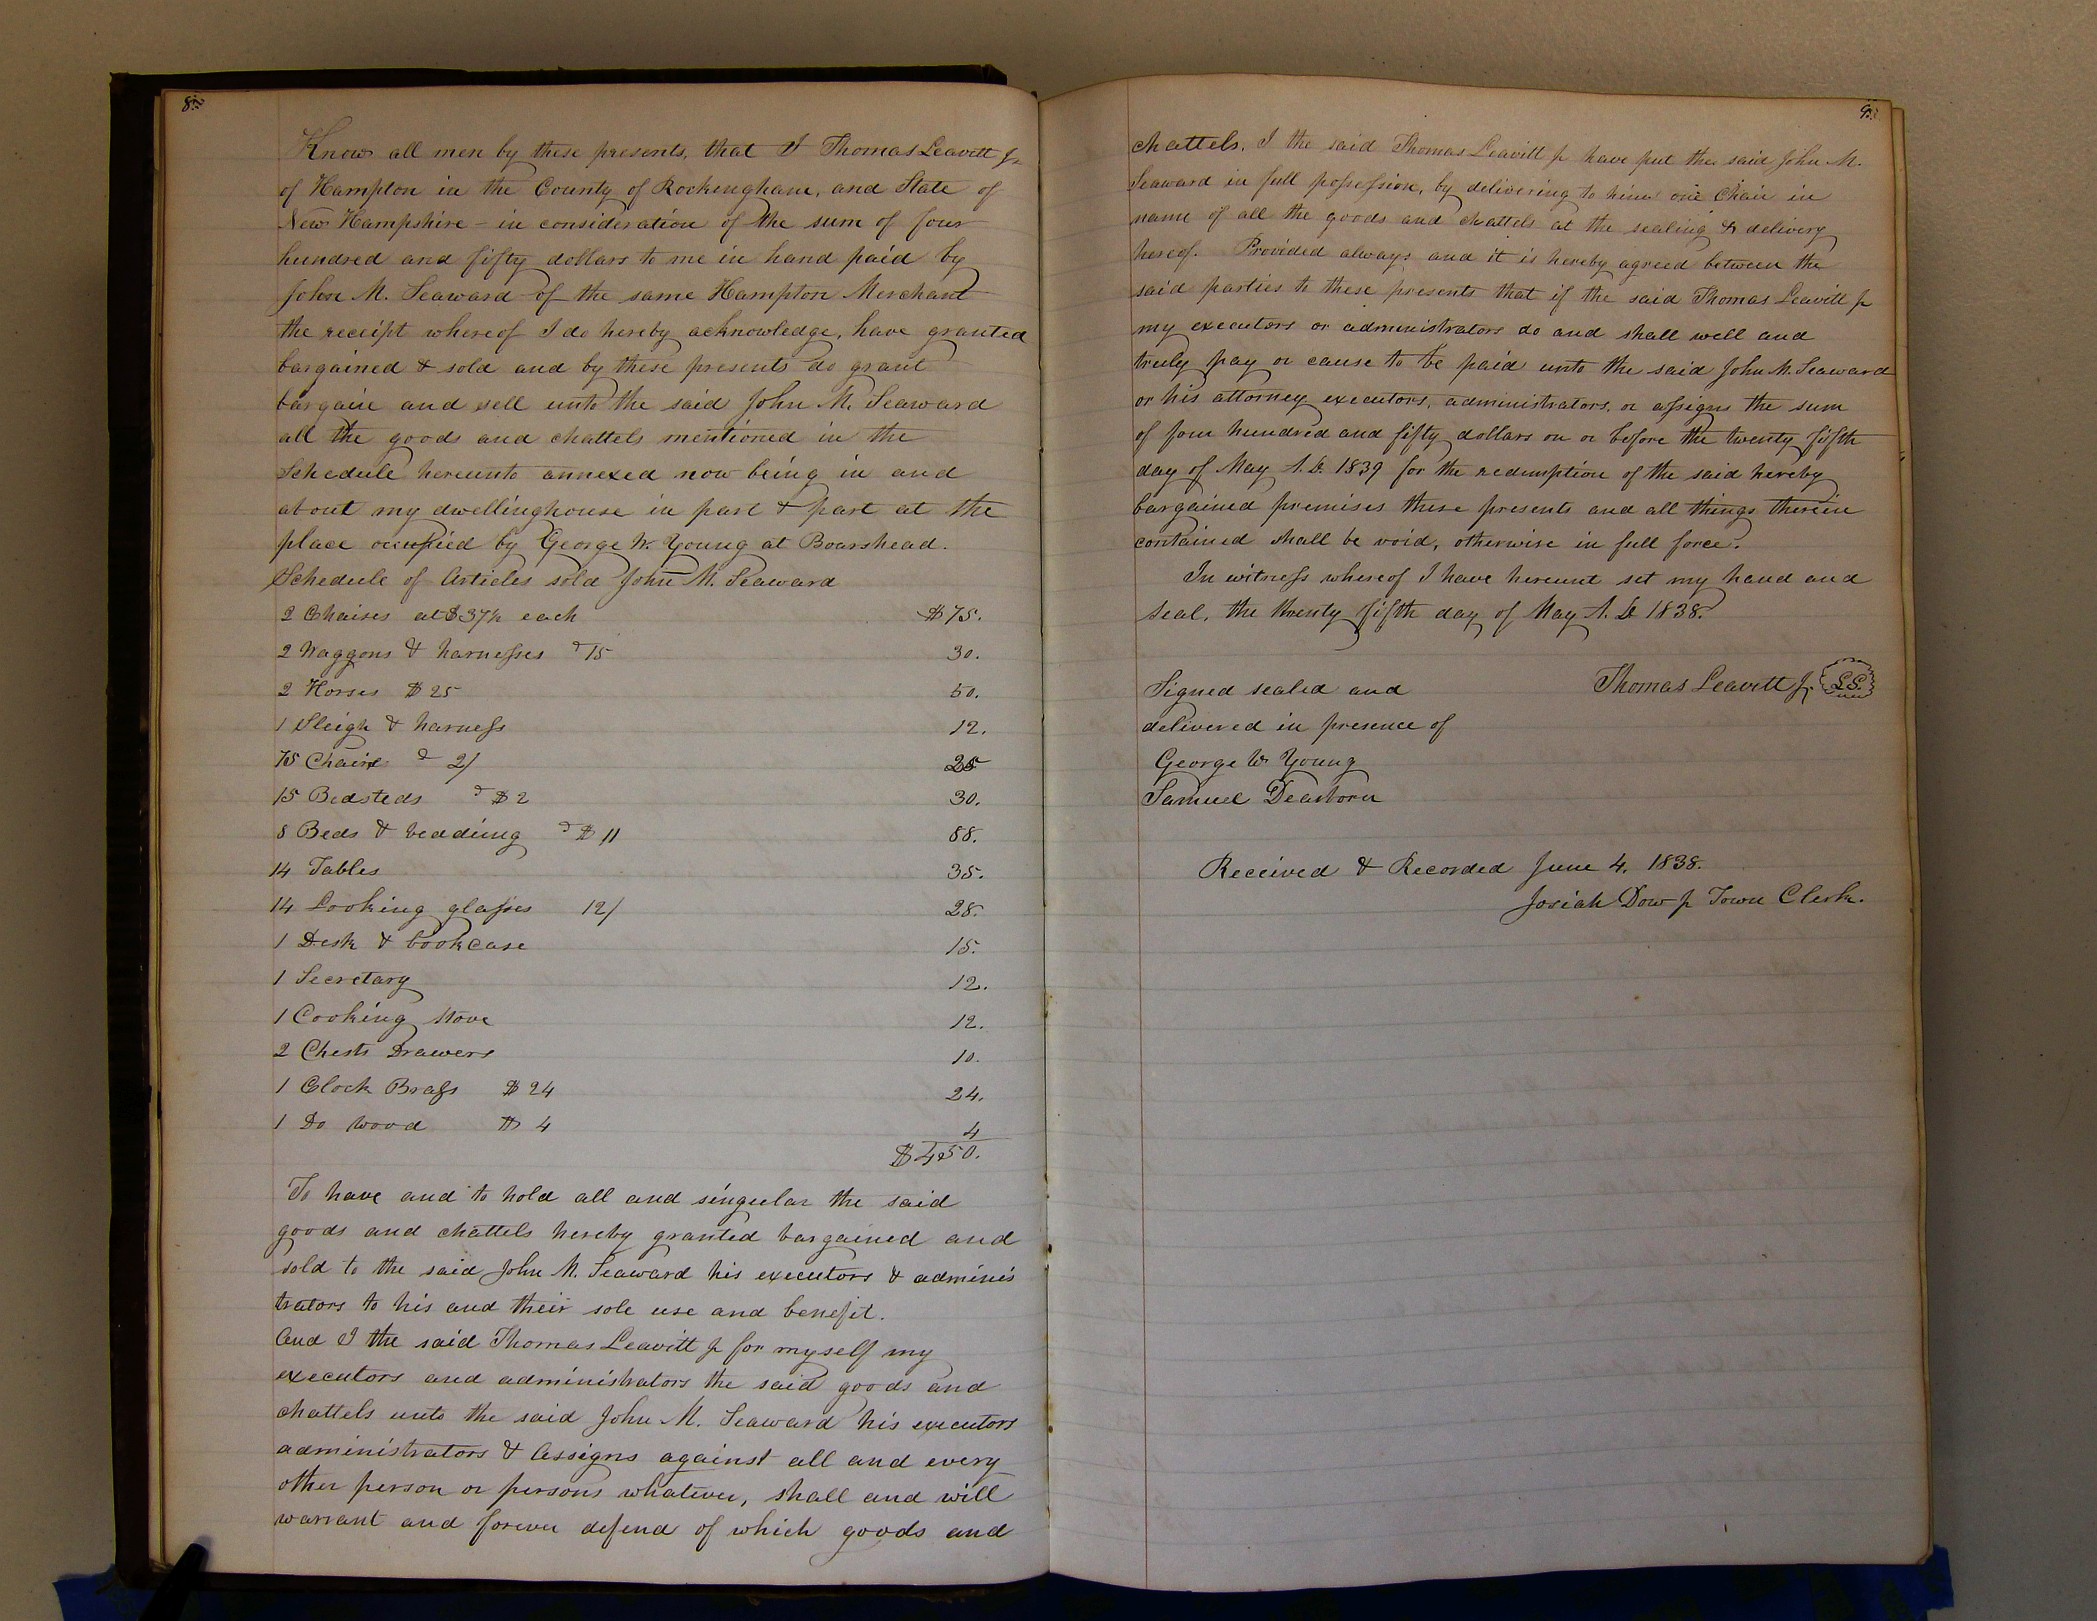 8
Know all men by these presents, that I Thomas Leavitt Jr
of Hampton in the County of Rockingham, and State of
New Hampshire - in consideration of the sum of four
hundred and fifty dollars to me in hand paid by
John M. Seaward of the same Hampton Merchant
the receipt whereof I do hereby acknowledge, have granted
bargained & sold and by these presents do grant
bargain and sell unto the said John M. Seaward
all the goods and chattels mentioned in the
Schedule hereunto annexed now being in and
about my dwellinghouse in part & part at the
place occupied by George W. Young at Boarshead.
Schedule of Articles sold John M. Seaward
2 Chaises at $37½ each $75.
2 Waggons & harnesses " 15 30.
2 Horses $25 50.
1 Sleigh & harness 12.
75 Chairs " 2/ 25
15 Bedsteds " $2 30.
8 Beds & bedding " $11 88.
14 Tables 35.
14 Looking glasses 12/ 28.
1 Desk & bookcase 15.
1 Secretary 12.
1 Cooking stove 12.
2 Chests Drawers 10.
1 Clock Brass $24 24.
1 Do wood $4 4
$450.
To have and to hold all and singular the said
goods and chattels hereby granted bargained and
sold to the said John M. Seaward his executors & adminis
trators to his and their sole use and benefit.
And I the said Thomas Leavitt Jr for myself my
executors and administrators the said goods and
chattels unto the said John M. Seaward his executors
administrators & Assigns against all and every
other person or persons whatever, shall and will
warrant and forever defend of which goods and
9
chattels, I the said Thomas Leavitt Jr have put the said John M.
Seaward in full possession, by delivering to him one Chair in
name of all the goods and chattels at the sealing & delivery
hereof. Provided always and it is hereby agreed between the
said parties to these presents that if the said Thomas Leavitt Jr
my executors or administrators do and shall well and
truly pay or cause to be paid unto the said John M. Seaward
or his attorney executors, administrators, or assigns the sum
of four hundred and fifty dollars on or before the twenty fifth
day of May A.D. 1839 for the redemption of the said hereby
bargained premises these presents and all things therein
contained shall be void, otherwise in full force.
In witness whereof I have hereunt set my hand and
seal, the twenty fifth day of May A.D. 1838.
Signed sealed and Thomas Leavitt Jr. L.S.
delivered in presence of
George W. Young
Samuel Dearborn
Received & Recorded June 4, 1838.
Josiah Dow Jr Town Clerk.